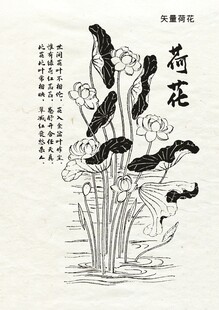 矢量荷花
荷花
世间花叶不相伦，花入金盆叶作尘。
惟有绿荷红菡萏，卷舒开合任天真。
此花此叶常相映，翠减红衰愁杀人。